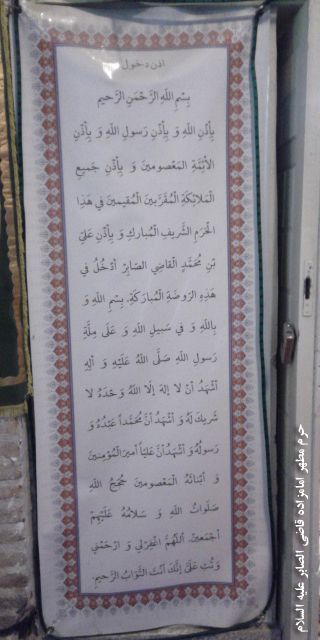 اذن دخول
بِسْمِ اللهِ الرَّحْمنِ الرَّحیمِ
بِإِذْنِ اللهِ وَ بِإِذْنِ رَسولِ اللهِ وَ بِإِذْنِ
الأَئِمَّةِ المَعْصومینَ وَ بِإِذْنِ جَمیعِ
المَلائِکَةِ الْمُقَرَّبینَ الْمُقیمینَ فی هَذا
الْحَرَمِ الشَّریفِ الْمُبارَکِ وَ بِإِذْنِ عَلیِّ
بْنِ مُحَمَّدٍ الْقاضِی الصّابِرِ أدْخُلُ فی
هَذِهِ الرَوضَةِ الْمُبارَکَةِ. بِسْمِ اللهِ وَ
بِاللهِ وَ فی سَبیلِ اللهِ وَ عَلَی مِلَّةِ
رَسولِ اللهِ صَلَّی اللهُ عَلَیْهِ وَ آلِهِ
أَشْهَدُ أنْ لا إلهَ إلّا اللهُ وَحْدَهُ لا
شَریکَ لَهُ وَ أشْهَدُ أنَّ مُحَمَّداً عَبْدُهُ وَ
رَسولُهُ وَ أشْهَدُ أنَّ عَلیّاً أمیرَ الْمُؤمِنینَ
وَ أبْنائَهُ الْمَعْصومینَ حُجَجُ اللهِ
صَلَواتُ اللهِ وَ سَلامُهُ عَلَیْهِمْ
أجْمَعینَ. أللّهُمَّ اغْفِرْلی وَ ارْحَمْنی
وَ تُبْ عَلَیَّ إنَّکَ أنْتَ التَّوّابُ الرَّحیمُ.
حرم مطهر امامزاده قاضی الصابر علیه السلام